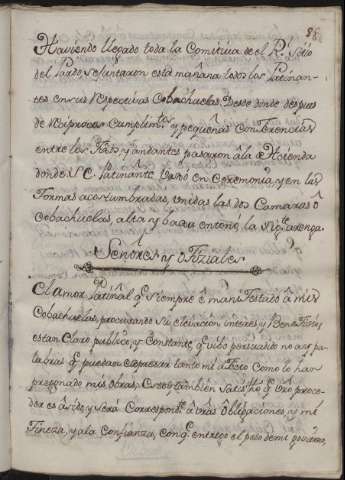 88.
Haviendo llegado toda la Comitiva de el R.l Sitio
del Pardo, se juntaron esta mañana todos los Patinan-
tes en sus Respectivas Cobachuelas, Desde donde despues
de Reciprocos Cumplim.tos y pequeñas Conferencias
entre los Xefes y andantes pasaron á la Hazienda
donde S. C. Patinante Vajó en Ceremonia, y en las
Formas acostumbradas, unidas las dos Camaras ó
Cobachuelas, alta y baxa entonó la Sig.te arenga
Señores, y Ofiziales
El amor Patiñal q.e siempre é manifestado á mis
Cobachuelas, procurando su elevacion interes y Beneficio,
estan Claro publico, y Constante q.e vivo persuadido no aya pa-
labras q.e puedan expresar tanto mi afecto Como lo han
pregonado mis obras. Creo tambien Satisfho q.e vro proce-
der es assi, y será Correspond.te á vras obligaciones, y mi
Fineza, y a la Confianza, con q.e entrego el peso de mi govierno,